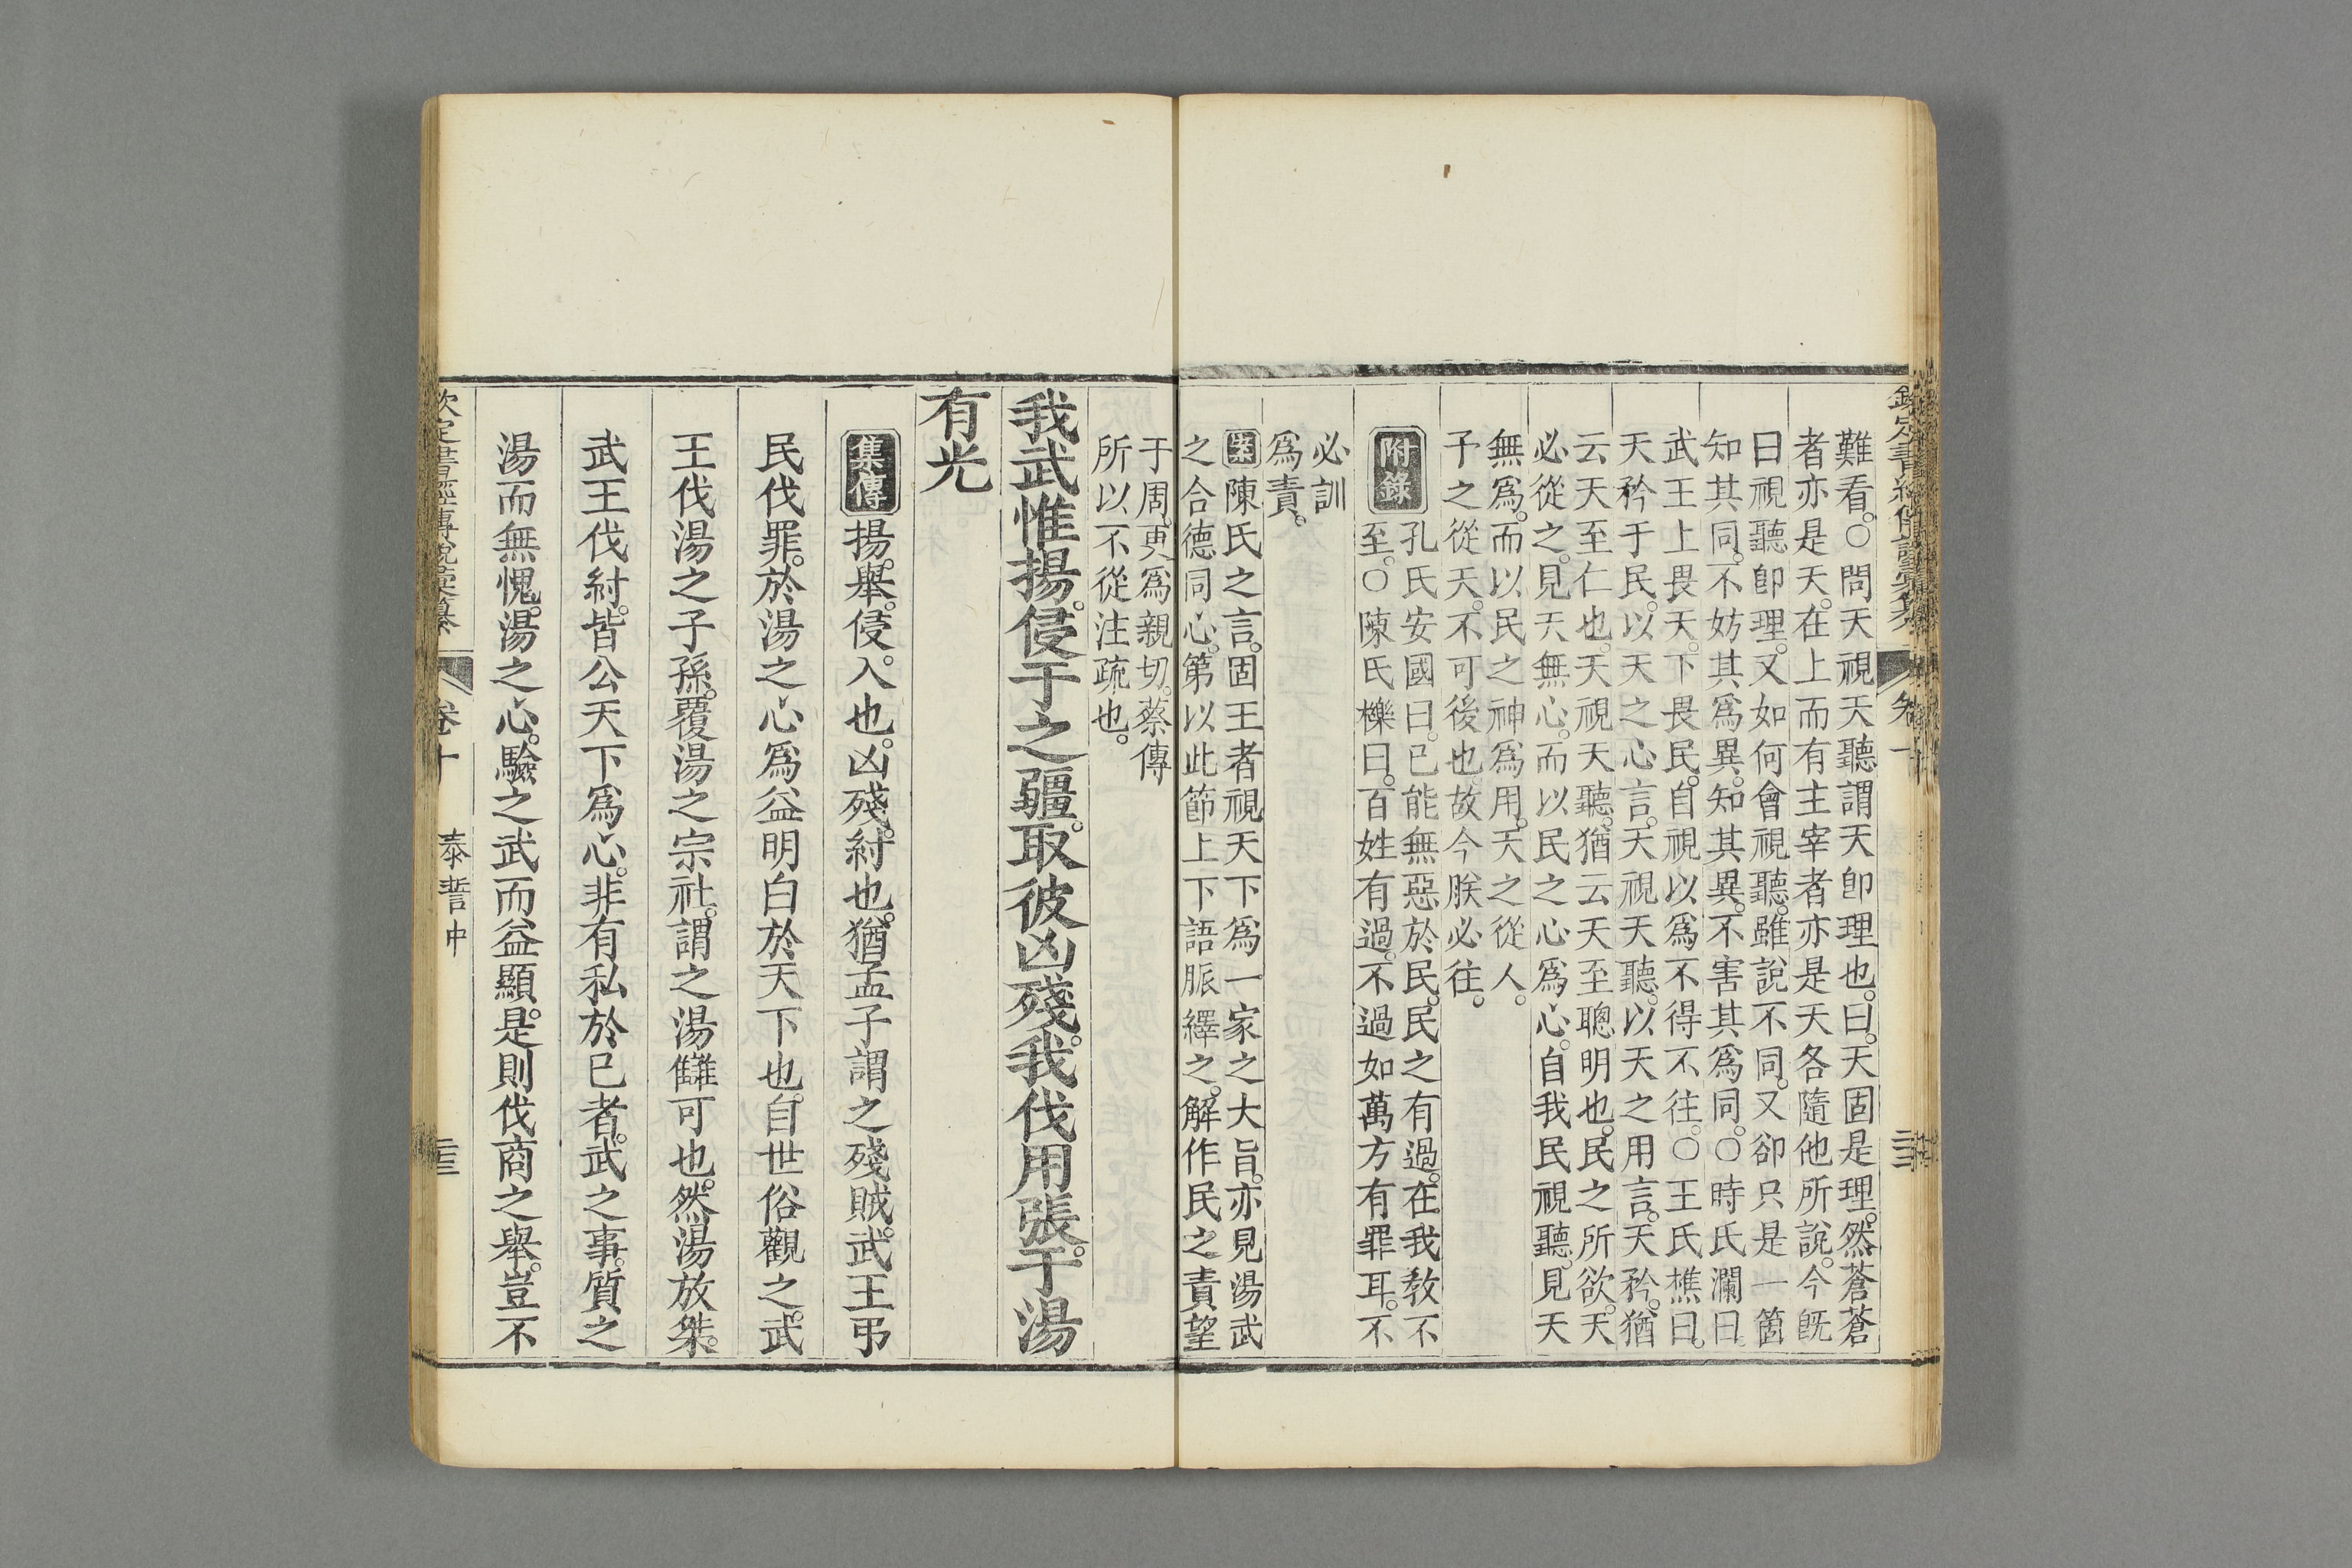 難看。○問天視天聽謂天卽理也。曰。天固是理。然蒼蒼
者亦是天。在上而有主宰者亦是天各隨他所說。今既
曰視聽卽理。又如何會視聽。雖說不同。又卻只是一箇
知其同。不妨其爲異。知其異。不害其爲同。○時氏瀾曰
武王上畏天。下畏民。自視以爲不得不往。○王氏樵曰。
天矜于民。以天之心言。天視天聽。以天之用言。天矜。猶
云天至仁也。天視天聽。猶云天至聰明也。民之所欲。天
必從之。見天無心。而以民之心爲心。自我民視聽。見天
無爲。而以民之神爲用。天之從人。
予之從天。不可後也。故今朕必往。
附錄
孔氏安國曰。已能無惡於民。民之有過。在我教不
至。○陳氏櫟曰。百姓有過。不過如萬方有罪耳。不
必訓
爲責。
案陳氏之言。固王者視天下爲一家之大旨。亦見湯武
之合德同心。第以此節上下語脈繹之。解作民之責望
于周。更爲親切。蔡傳
所以不從注疏也。
我武惟揚。侵于之疆。取彼凶殘。我伐用張。于湯
有光
集傳揚。舉。侵。入也。凶殘。紂也。猶孟子謂之殘賊。武王弔
民伐罪。於湯之心爲益明白於天下也。自世俗觀之。武
王伐湯之子孫。覆湯之宗社。謂之湯讎可也。然湯放桀。
武王伐紂。皆公天下爲心。非有私於已者。武之事。質之
湯而無愧。湯之心。驗之武而益顯。是則伐商之舉。豈不
欽定書經傳說彙纂 卷十 泰誓中